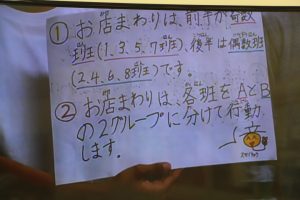 ① お店まわりは、前半が奇数
班(1.3.5.7班)、後半は偶数班
(2.4.6.8班)です。
② お店まわりは、各班をAとB
の2グループに分けて行動
します。